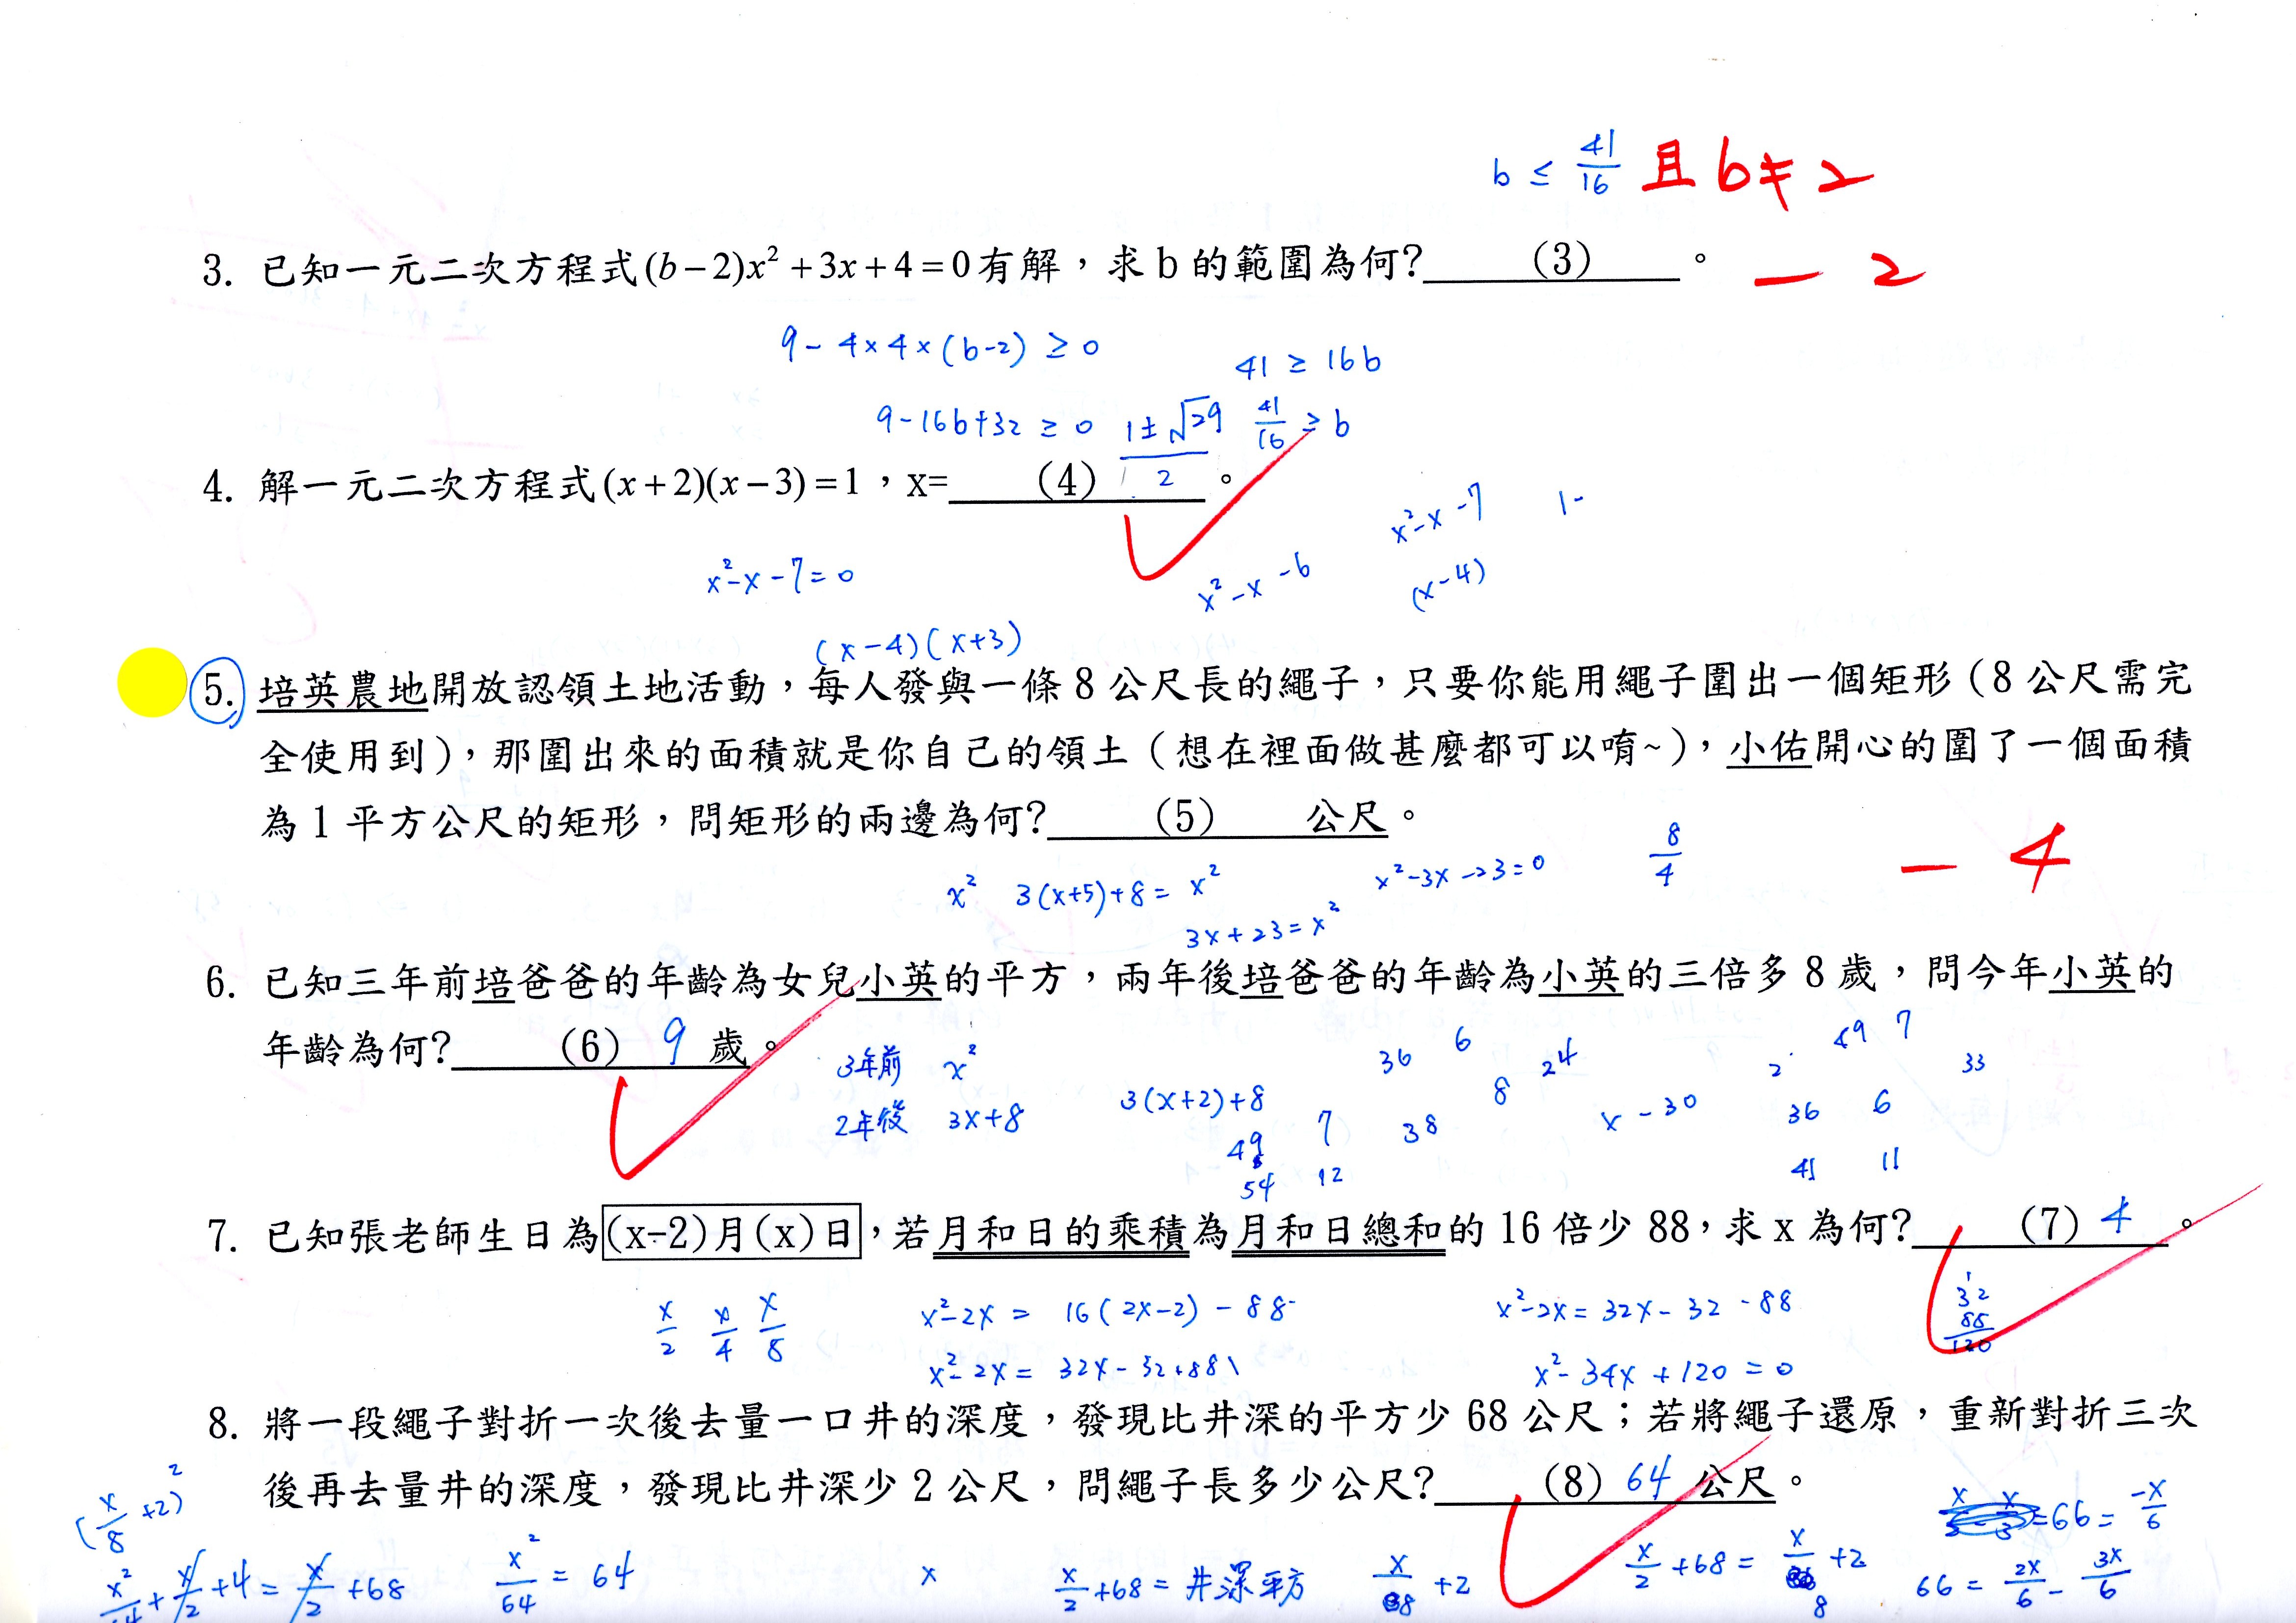 b ≤ 41/16 且 b≠2
3. 已知一元二次方程式(b−2)x²+3x+4=0有解，求b的範圍為何?（3）。 −2
9−4×4×(b−2) ≥ 0
41 ≥ 16b
9−16b+32 ≥ 0
41/16 ≥ b
4. 解一元二次方程式(x+2)(x−3)=1，x=（4）(1±√29)/2。
x²−x−7 1-
x²−x−7=0
x²−x−6
(x−4)
(x−4)(x+3)
5. 培英農地開放認領土地活動，每人發與一條8公尺長的繩子，只要你能用繩子圍出一個矩形（8公尺需完
全使用到），那圍出來的面積就是你自己的領土（想在裡面做甚麼都可以唷~），小佑開心的圍了一個面積
為1平方公尺的矩形，問矩形的兩邊為何?（5） 公尺。
8/4
−4
x² 3(x+5)+8=x² x²−3x−23=0
3x+23=x²
6. 已知三年前培爸爸的年齡為女兒小英的平方，兩年後培爸爸的年齡為小英的三倍多8歲，問今年小英的
年齡為何?（6） 9 歲。
3年前 x²
36 6 24 49 7
2 33
2年後 3x+8 3(x+2)+8 8 x−30 36 6
49 7 38
54 12 41 11
7. 已知張老師生日為(x-2)月(x)日，若月和日的乘積為月和日總和的16倍少88，求x為何?（7）4。
x/2 x/4 x/8 x²−2x = 16(2x−2)−88 x²−2x=32x−32−88
32
88
120
x²−2x= 32x−32+88 x²−34x+120=0
8. 將一段繩子對折一次後去量一口井的深度，發現比井深的平方少68公尺；若將繩子還原，重新對折三次
後再去量井的深度，發現比井深少2公尺，問繩子長多少公尺?（8）64 公尺。
(x/8+2)²
=66=−x/6
x²/64+x/2+4=x/2+68 x²/64=64 x x/2+68=井深平方 x/8+2 x/2+68=x/8+2 66=2x/6−3x/6